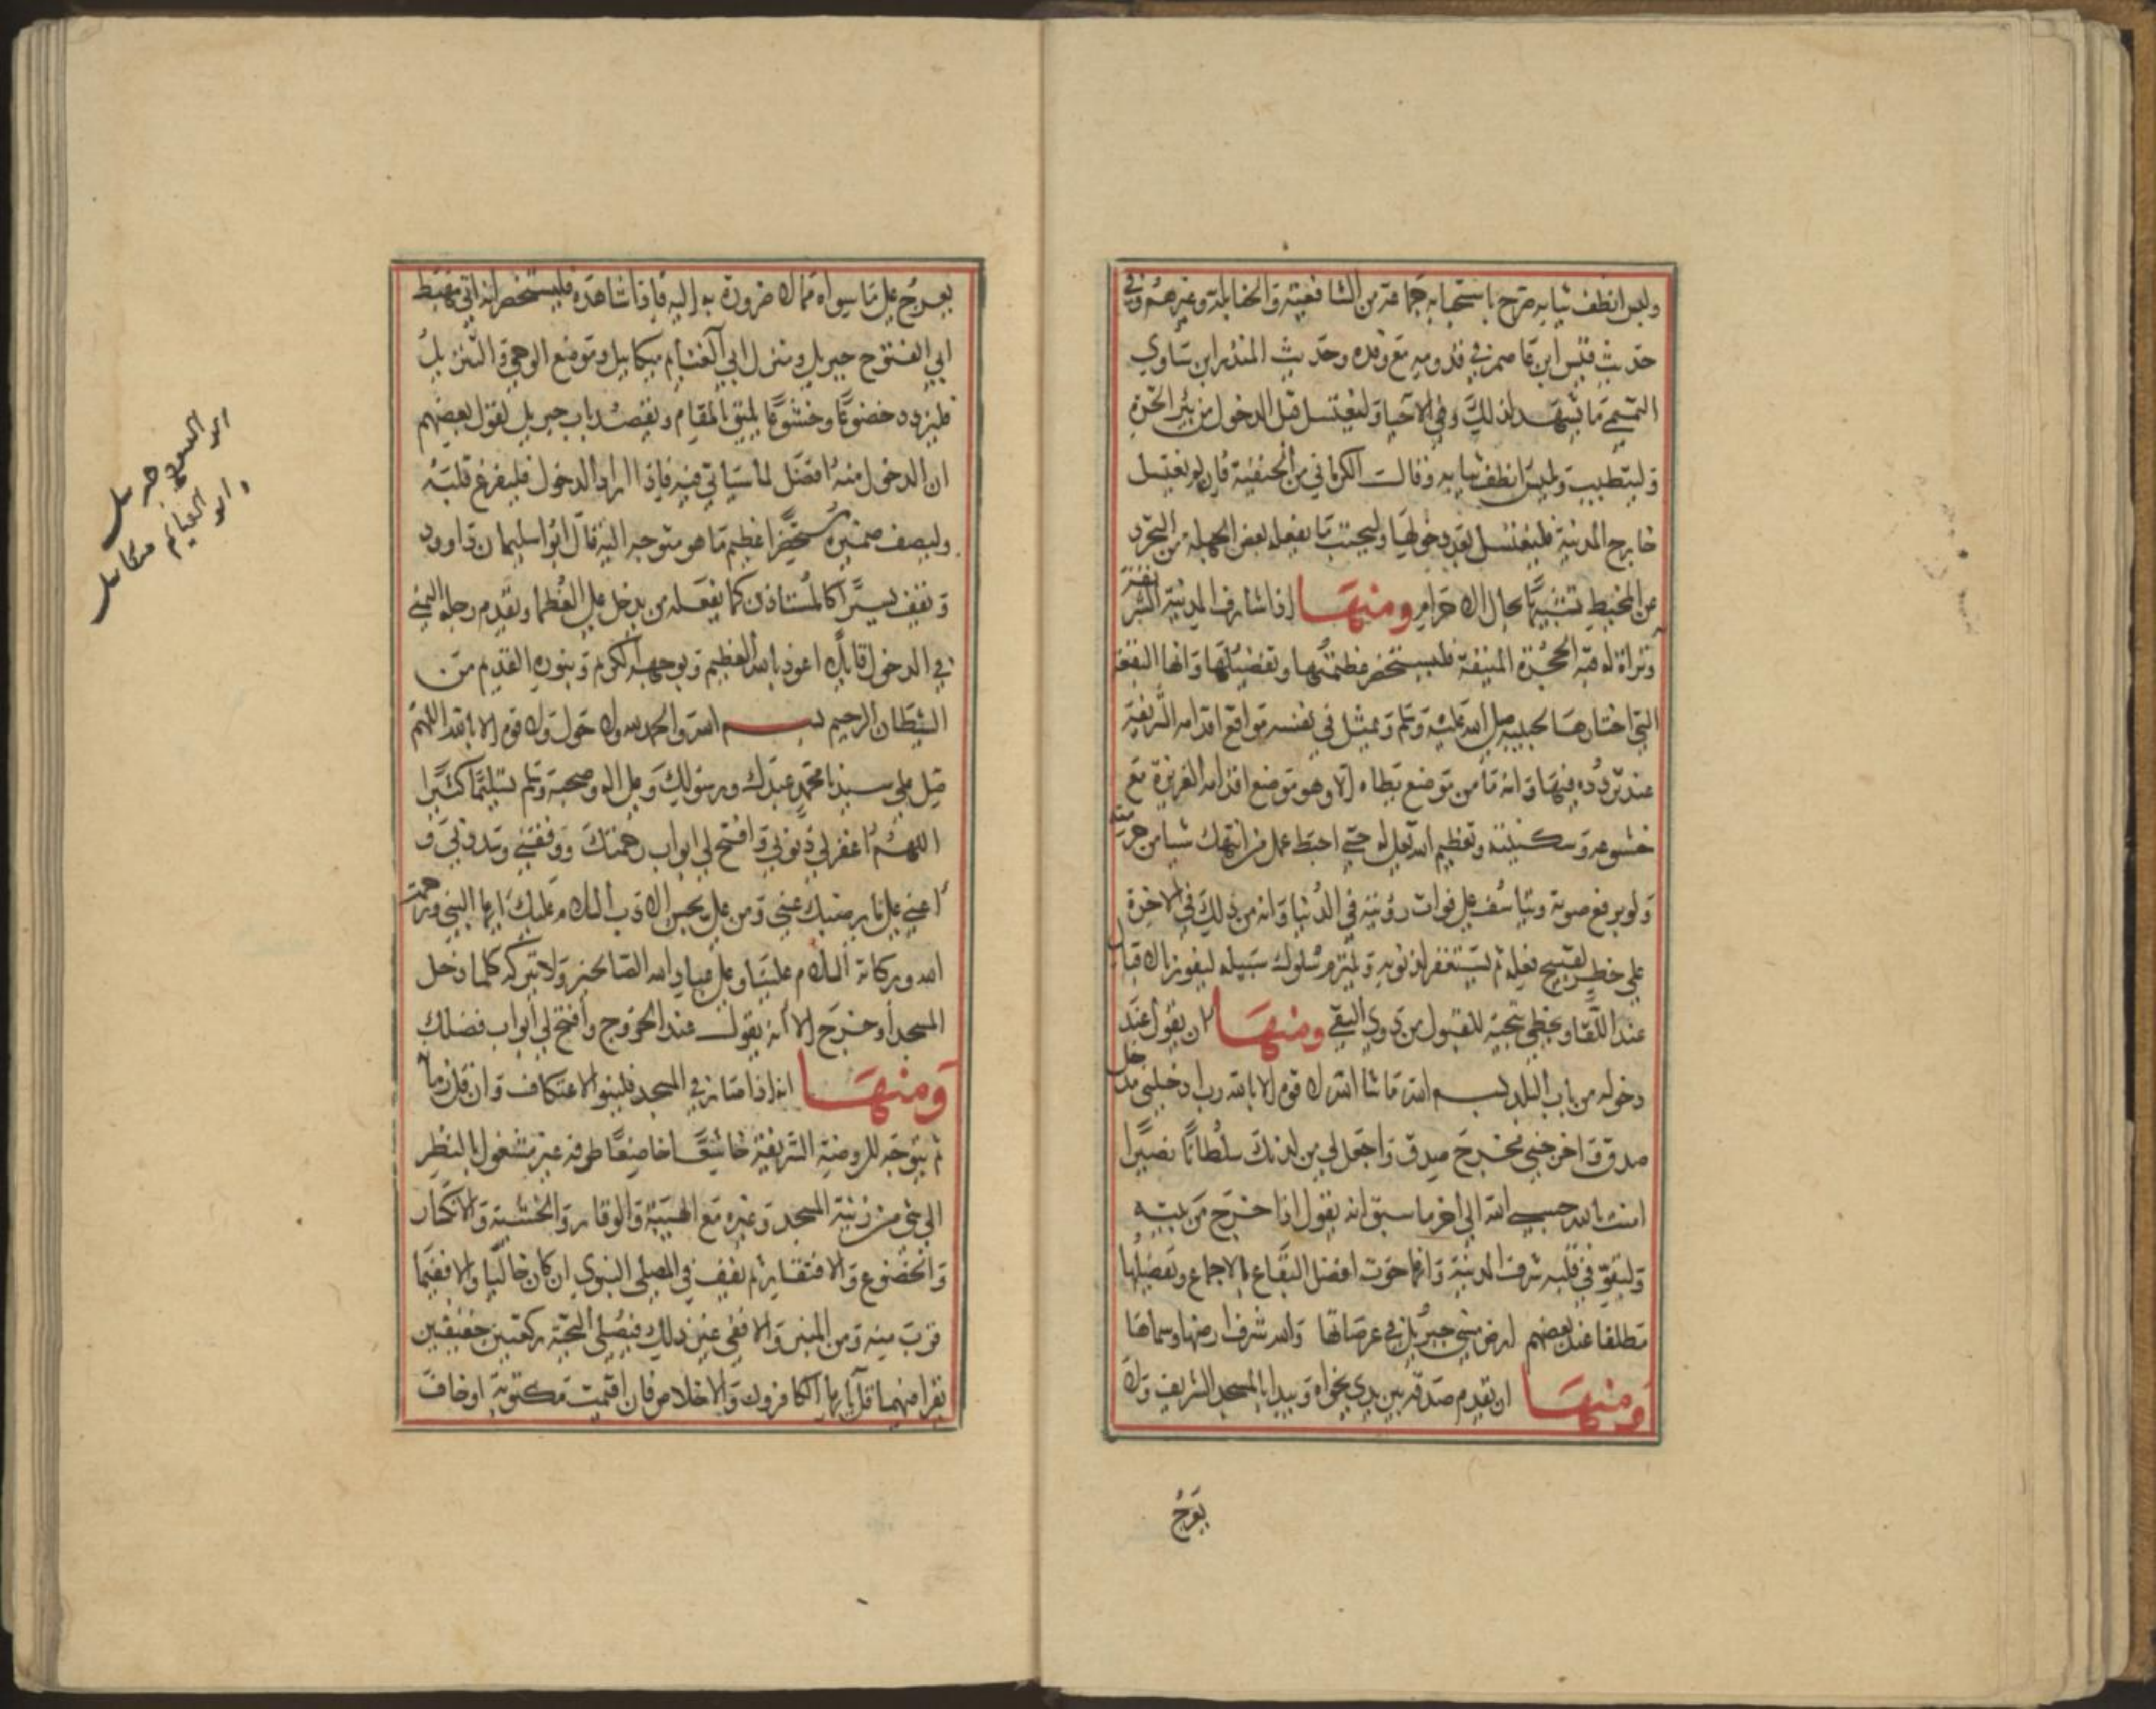 ولبس انظف ثيابه صرح باستحبابه جماعة من الشافعية والحنابلة وغيرهم وفي
حديث قيس ابن عاصم في قدومه مع وفده وحديث المنذر ابن ساوي
التميمي ما يشهد لذلك وفي الاحيا وليغتسل قبل الدخول من بئر الحرة
وليتطيب وليلبس انظف ثيابه وقالت الكرماني من الحنفية فان لم يغتسل
خارج المدينة فليغتسل بعد دخولها وليجتنب ما يفعله بعض الجهلة من التجرد
عن المخيط تشبيها بحال الاحرام ومنها اذا شارف المدينة الشريفة
وتراات له قبة الحجرة المنيفة فليستحضر عظمتها وتفضيلها وانها البقعة
التي اختارها لحبيبه صلى الله عليه وسلم ويمثل في نفسه مواقع اقدامه الشريفة
عند تردده فيها وانه ما من موضع يطاه الا وهو موضع اقدامه العزيزة مع
خشوعه وسكينته وتعظيم الله تعالى له حتى احبط عمل من انتهك شيا من حرمته
ولو برفع صوته ويتاسف على فوات رؤيته في الدنيا وانه من ذلك في الاخرة
على خطر لقبيح فعله ثم ليستغفر لذنوبه وليلتزم سلوك سبيله ليفوز بالاقبال
عند اللقا ويحظى بتحية المقبول من ذوي التقى ومنها ان يقول عند
دخوله من باب البلد بسم الله ما شا الله لا قوة الا بالله رب ادخلني مدخل
صدق واخرجني مخرج صدق واجعل لي من لدنك سلطانا نصيرا
امنت بالله حسبي الله الى اخر ما سبق انه يقول اذا خرج من بيته
وليقو في قلبه شرف المدينة وانها حوت افضل البقاع بالاجماع وتفضيلها
مطلقا عند بعضهم ارض مشى جبريل في عرصاتها والله شرف ارضها وسماها
ومنها ان يقدم صدقة بين يدي نجواه ويبدا بالمسجد الشريف ولا
يعرج
يعرج على ما سواه مما لا ضرورة به اليه فاذا شاهده فليستحضر انه اتى مهبط
ابي الفتوح جبريل ومنزل ابي الغنايم ميكاييل وموضع الوحي والتنزيل
فليزدد خضوعا وخشوعا يليق بالمقام ويقصد باب جبريل لقول بعضهم
ان الدخول منه افضل لما سياتي فيه فاذا اراد الدخول فليفرغ قلبه
وليصف ضميره مستحضرا عظيم ما هو متوجه اليه قال ابو اسليمان داوود
ويقف يسيرا كالمستاذن كما يفعله من يدخل على العظما ويقدم رجله اليمنى
في الدخول قايلا اعوذ بالله العظيم وبوجهه الكريم وبنوره القديم من
الشيطان الرجيم بسم الله والحمد لله ولا حول ولا قوة الا بالله اللهم
صل على سيدنا محمد عبدك ورسولك وعلى اله وصحبه وسلم تسليما كثيرا
اللهم اغفر لي ذنوبي وافتح لي ابواب رحمتك ووفقني وسددني و
اعني على ما يرضيك عني ومن علي بحسن الادب السلام عليك ايها النبي ورحمة
الله وبركاته السلام علينا وعلى عباد الله الصالحين ولا تتركه كلما دخل
المسجد أو خرج الا أنه يقول عند الخروج وأفتح لي أبواب فضلك
ومنها انه اذا صار في المسجد فلينو الاعتكاف وان قل زمانا
ثم يتوجه للروضة الشريفة خاشعا خاضعا طرفه غير مشغول بالنظر
الى شي من زينة المسجد وغيره مع الهيبة والوقار والخشية والانكسار
والخضوع والافتقار ثم يقف في المصلى النبوي ان كان خاليا والا ففيما
قرب منه ومن المنبر والا ففي غير ذلك فيصلي التحية ركعتين خفيفتين
يقرا فيهما قل يا ايها الكافرون والاخلاص فان اقيمت مكتوبة او خاف
ابو الفتوح جبريل
وابو الغنايم ميكاييل